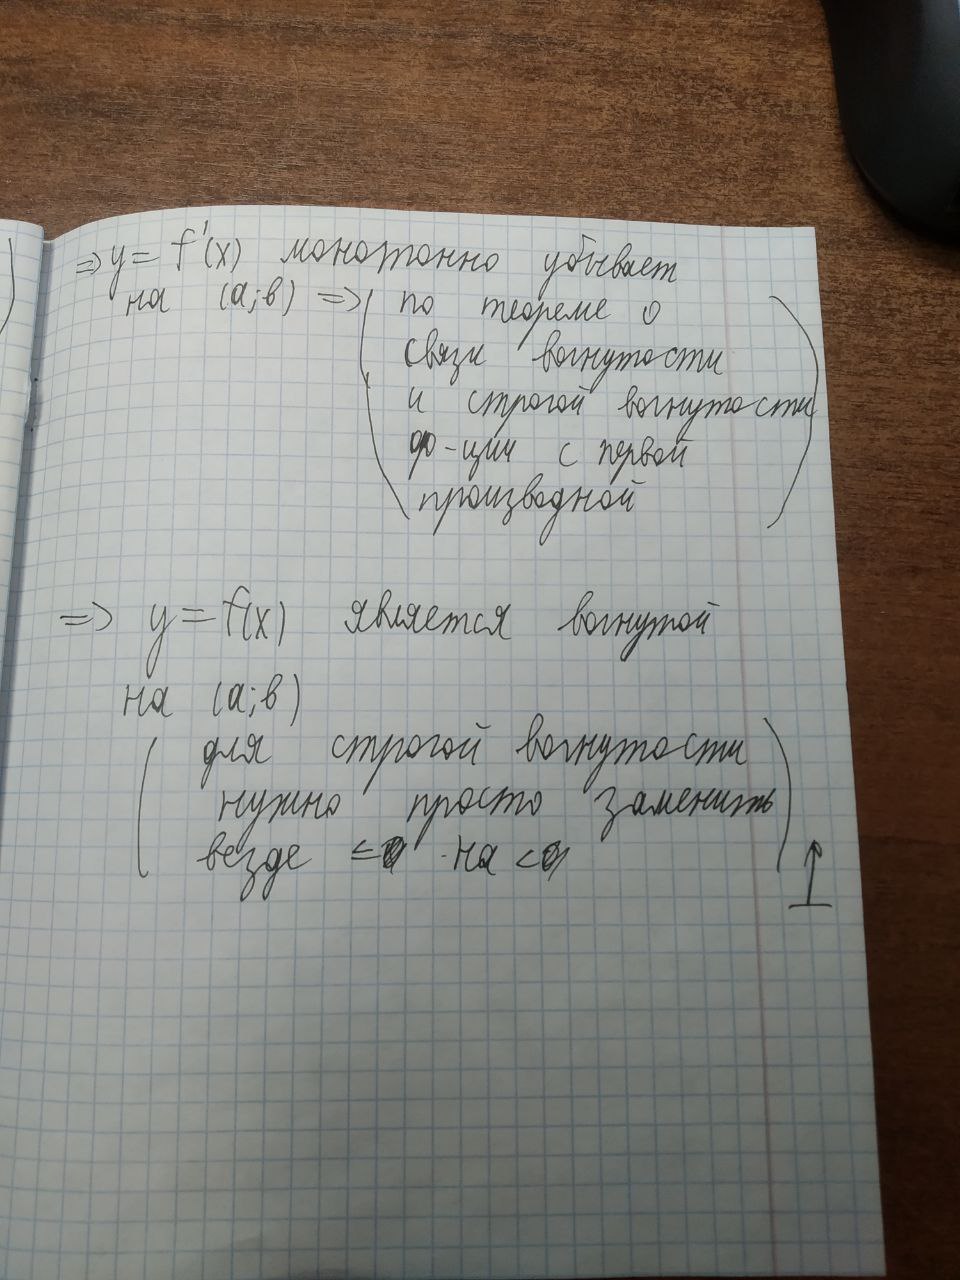 ⇒ y = f'(x) монотонно убывает
на (a;b) ⇒ (по теореме о
связи вогнутости
и строгой вогнутости
ф-ции с первой
производной)
⇒ y = f(x) является вогнутой
на (a;b)
(для строгой вогнутости
нужно просто заменить
везде ≤0 на <0)